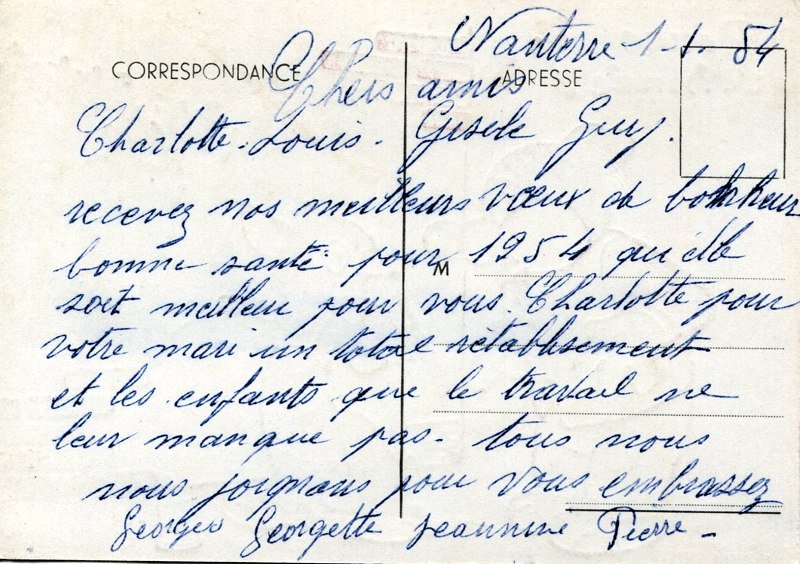 Nanterre 1-1. 54
CORRESPONDANCE
ADRESSE
Chers amis
Charlotte. Louis. Gisele Guy.
recevez nos meilleurs vœux de bonheur
bonne santé pour 1954 qu'elle
soit meilleur pour vous. Charlotte pour
votre mari un total rétablissement
M
et les enfants que le travail ne
leur manque pas. tous nous
nous joignons pour vous embrassez
Georges Georgette Jeannine Pierre